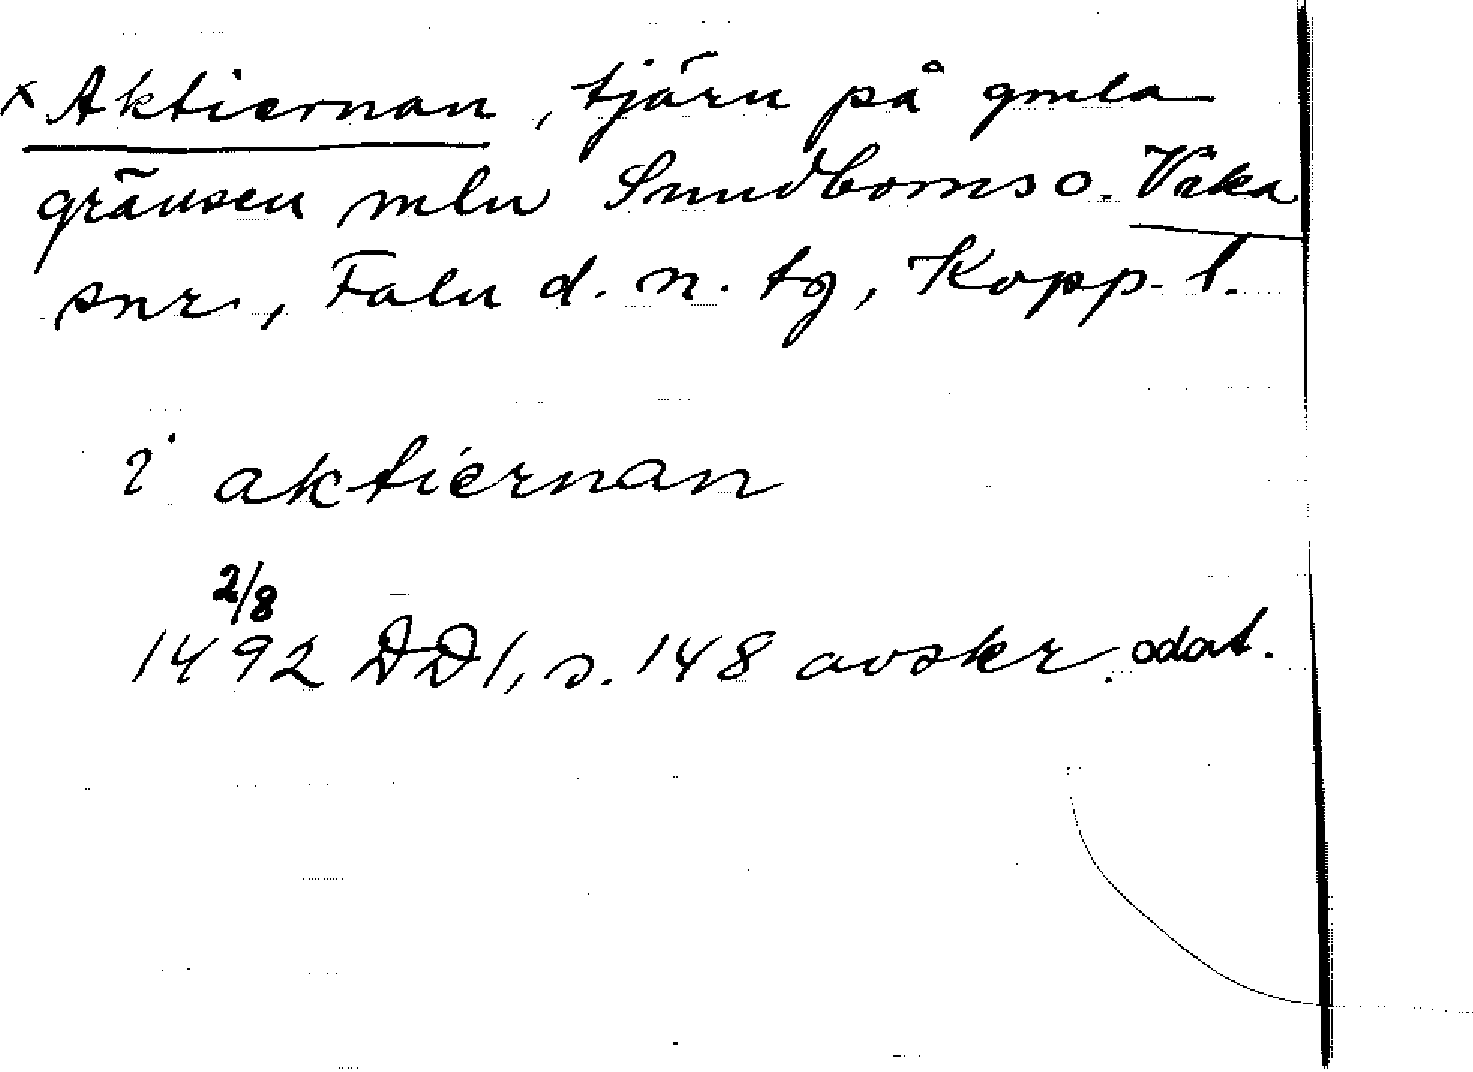 x Aktiernan, tjärn på gmla
gränsen mln Sundborns o. Vika
snr, Falu d. n. tg, Kopp. l.
i aktiernan
2/8
1492 DD1, s. 148 avskr. odat.